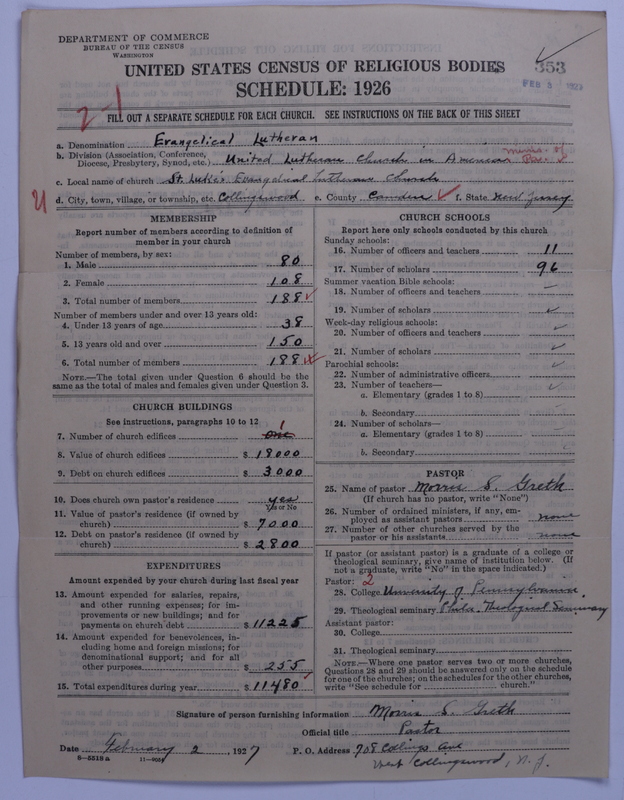 DEPARTMENT OF COMMERCE
BUREAU OF THE CENSUS
WASHINGTON
UNITED STATES CENSUS OF RELIGIOUS BODIES
353
FEB 5 1927
SCHEDULE: 1926
2-1
FILL OUT A SEPARATE SCHEDULE FOR EACH CHURCH. SEE INSTRUCTIONS ON THE BACK OF THIS SHEET
a. Denomination Evangelical Lutheran
b. Division (Association, Conference, Diocese, Presbytery, Synod, etc.) United Lutheran Church in America
c. Local name of church St. Luke's Evangelical Lutheran Church
d. City, town, village, or township, etc. Collingswood e. County Camden f. State New Jersey
MEMBERSHIP
Report number of members according to definition of
member in your church
Number of members, by sex:
1. Male 80
2. Female 108
3. Total number of members 188
Number of members under and over 13 years old:
4. Under 13 years of age 38
5. 13 years old and over 150
6. Total number of members 188
NOTE.—The total given under Question 6 should be the
same as the total of males and females given under Question 3.
CHURCH BUILDINGS
See instructions, paragraphs 10 to 12
7. Number of church edifices one 1
8. Value of church edifices $ 18000
9. Debt on church edifices $ 3000
10. Does church own pastor's residence? yes
Yes or No
11. Value of pastor's residence (if owned by
church) $ 7000
12. Debt on pastor's residence (if owned by
church) $ 2800
EXPENDITURES
Amount expended by your church during last fiscal year
13. Amount expended for salaries, repairs,
and other running expenses; for im-
provements or new buildings; and for
payments on church debt $ 11225
14. Amount expended for benevolences, in-
cluding home and foreign missions; for
denominational support; and for all
other purposes $ 255
15. Total expenditures during year $ 11480
CHURCH SCHOOLS
Report here only schools conducted by this church
Sunday schools:
16. Number of officers and teachers 11
17. Number of scholars 96
Summer vacation Bible schools:
18. Number of officers and teachers
19. Number of scholars
Week-day religious schools:
20. Number of officers and teachers
21. Number of scholars
Parochial schools:
22. Number of administrative officers
23. Number of teachers—
a. Elementary (grades 1 to 8)
b. Secondary
24. Number of scholars—
a. Elementary (grades 1 to 8)
b. Secondary
PASTOR
25. Name of pastor Morris S. Greth
(If church has no pastor, write "None")
26. Number of ordained ministers, if any, em-
ployed as assistant pastors none
27. Number of other churches served by the
pastor or his assistants none
If pastor (or assistant pastor) is a graduate of a college or
theological seminary, give name of institution below. (If
not a graduate, write "No" in the space indicated.)
Pastor: 2
28. College University of Pennsylvania
29. Theological seminary Phila. Theological Seminary
Assistant pastor:
30. College
31. Theological seminary
NOTE.—Where one pastor serves two or more churches,
Questions 28 and 29 should be answered only on the schedule
for one of the churches; on the schedules for the other churches,
write "See schedule for church."
Signature of person furnishing information Morris S. Greth
Official title Pastor
Date February 2, 1927 P. O. Address 708 Collings Ave
West Collingswood, N. J.
8-5518a